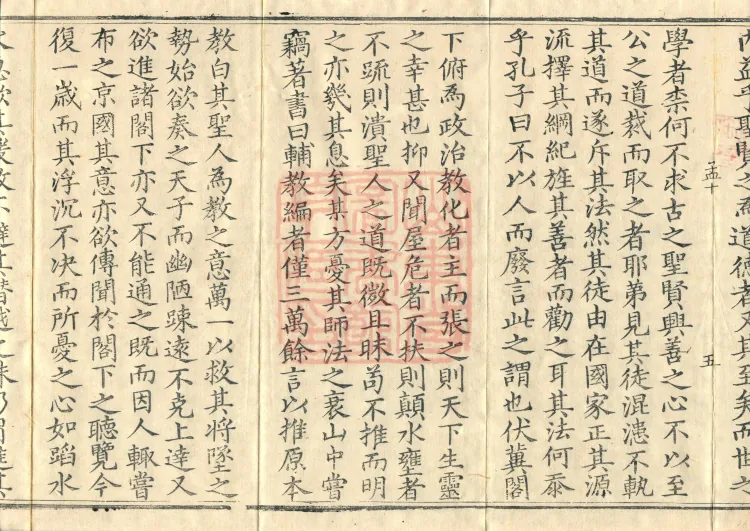 益乎聖賢之為道德者又其至矣而世之
孟十
五
學者柰何不求古之聖賢興善之心不以至
公之道裁而取之者耶第見其徒混漶不軌
其道而遂斥其法然其徒由在國家正其源
流擇其綱紀旌其善者而勸之耳其法何忝
乎孔子曰不以人而廢言此之謂也伏冀閣
下俯為政治教化者主而張之則天下生靈
之幸甚也抑又聞屋危者不扶則顛水壅者
不疏則潰聖人之道既微且昧苟不推而明
之亦幾其息矣某方憂其師法之衰山中嘗
竊著書曰輔教編者僅三萬餘言以推原本
教白其聖人為教之意萬一以救其將墜之
勢始欲奏之天子而幽陋踈遠不克上達又
欲進諸閣下亦又不能通之既而因人輒嘗
布之京國其意亦欲傳聞於閣下之聽覽今
復一歲而其浮沉不决而所憂之心如蹈水